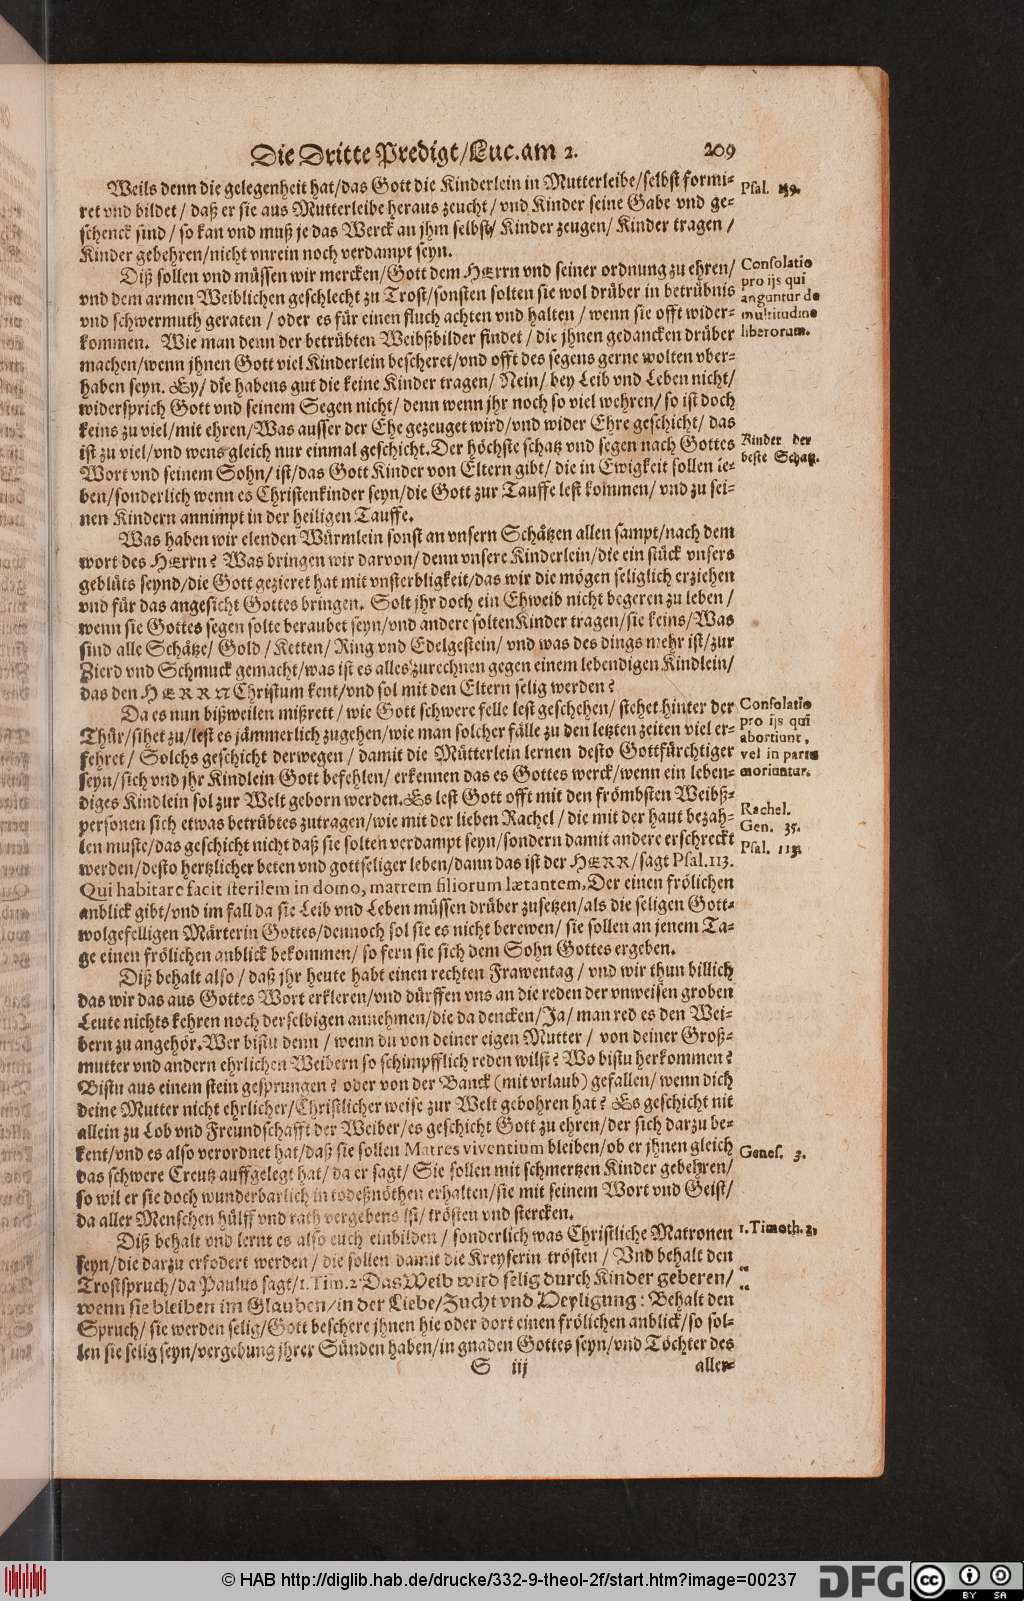 Die Dritte Predigt/Luc. am 2. 209
Weils denn die gelegenheit hat/das Gott die Kinderlein in Mutterleibe/selbst formi-
ret vnd bildet/ daß er sie aus Mutterleibe heraus zeucht/ vnd Kinder seine Gabe vnd ge-
schenck sind/ so kan vnd muß je das Werck an jhm selbst/ Kinder zeugen/ Kinder tragen/
Kinder gebehren/nicht vnrein noch verdampt seyn.
Psal. 139.
Diß sollen vnd müssen wir mercken/Gott dem HErrn vnd seiner ordnung zu ehren/
vnd dem armen Weiblichen geschlecht zu Trost/sonsten solten sie wol drüber in betrübnis
vnd schwermuth geraten/ oder es für einen fluch achten vnd halten/ wenn sie offt wider-
kommen. Wie man denn der betrübten Weibßbilder findet/ die jhnen gedancken drüber
machen/wenn jhnen Gott viel Kinderlein bescheret/vnd offt des segens gerne wolten vber-
haben seyn. Ey/ die habens gut die keine Kinder tragen/ Nein/ bey Leib vnd Leben nicht/
widersprich Gott vnd seinem Segen nicht/ denn wenn jhr noch so viel wehren/ so ist doch
keins zu viel/mit ehren/Was ausser der Ehe gezeuget wird/vnd wider Ehre geschicht/ das
ist zu viel/vnd wens gleich nur einmal geschicht. Der höchste schatz vnd segen nach Gottes
Wort vnd seinem Sohn/ ist/das Gott Kinder von Eltern gibt/ die in Ewigkeit sollen le-
ben/sonderlich wenn es Christenkinder seyn/die Gott zur Tauffe lest kommen/ vnd zu sei-
nen Kindern annimpt in der heiligen Tauffe.
Consolatio
pro ijs qui
anguntur de
multitudine
liberorum.
Kinder der
beste Schatz.
Was haben wir elenden Würmlein sonst an vnsern Schätzen allen sampt/nach dem
wort des HErrn? Was bringen wir darvon/ denn vnsere Kinderlein/die ein stück vnsers
geblüts seynd/die Gott gezieret hat mit vnsterbligkeit/das wir die mögen seliglich erziehen
vnd für das angesicht Gottes bringen. Solt jhr doch ein Ehweib nicht begeren zu leben/
wenn sie Gottes segen solte beraubet seyn/vnd andere solten Kinder tragen/sie keins/Was
sind alle Schätze/ Gold/ Ketten/ Ring vnd Edelgestein/ vnd was des dings mehr ist/zur
Zierd vnd Schmuck gemacht/was ist es alles zurechnen gegen einem lebendigen Kindlein/
das den HERRN Christum kent/vnd sol mit den Eltern selig werden?
Da es nun bißweilen mißrett/ wie Gott schwere felle lest geschehen/ stehet hinter der
Thür/sihet zu/lest es jämmerlich zugehen/wie man solcher fälle zu den letzten zeiten viel er-
fehret/ Solchs geschicht derwegen/ damit die Mütterlein lernen desto Gottfürchtiger
seyn/sich vnd jhr Kindlein Gott befehlen/ erkennen das es Gottes werck/wenn ein leben-
diges Kindlein sol zur Welt geborn werden. Es lest Gott offt mit den frömbsten Weibß-
personen sich etwas betrübtes zutragen/wie mit der lieben Rachel/ die mit der haut bezah-
len muste/das geschicht nicht daß sie solten verdampt seyn/sondern damit andere erschreckt
werden/desto hertzlicher beten vnd gottseliger leben/dann das ist der HERR/sagt Psal. 113.
Qui habitare facit sterilem in domo, matrem filiorum lætantem, Der einen frölichen
anblick gibt/vnd im fall da sie Leib vnd Leben müssen drüber zusetzen/als die seligen Gott-
wolgefelligen Märterin Gottes/dennoch sol sie es nicht berewen/ sie sollen an jenem Ta-
ge einen frölichen anblick bekommen/ so fern sie sich dem Sohn Gottes ergeben.
Consolatio
pro ijs qui
abortiunt,
vel in partu
moriuntur.
Rachel.
Gen. 35.
Psal. 113.
Diß behalt also/ daß jhr heute habt einen rechten Frawentag/ vnd wir thun billich
das wir das aus Gottes Wort erkleren/vnd dürffen vns an die reden der vnweisen groben
Leute nichts kehren noch derselbigen annehmen/die da dencken/Ja/ man red es den Wei-
bern zu angehör. Wer bistu denn/ wenn du von deiner eigen Mutter/ von deiner Groß-
mutter vnd andern ehrlichen Weibern so schimpfflich reden wilst? Wo bistu herkommen?
Bistu aus einem stein gesprungen? oder von der Banck (mit vrlaub) gefallen/ wenn dich
deine Mutter nicht ehrlicher/Christlicher weise zur Welt gebohren hat? Es geschicht nit
allein zu Lob vnd Freundschafft der Weiber/es geschicht Gott zu ehren/der sich darzu be-
kent/vnd es also verordnet hat/daß sie sollen Matres viventium bleiben/ob er jhnen gleich
das schwere Creutz auffgelegt hat/ da er sagt/ Sie sollen mit schmertzen Kinder gebehren/
so wil er sie doch wunderbarlich in todeßnöthen erhalten/sie mit seinem Wort vnd Geist/
da aller Menschen hülff vnd rath vergebens ist/ trösten vnd stercken.
Genes. 3.
Diß behalt vnd lernt es also euch einbilden/ sonderlich was Christliche Matronen
seyn/die darzu erfodert werden/ die sollen damit die Kreyserin trösten/ Vnd behalt den
Trostspruch/da Paulus sagt/1. Tim. 2. Das Weib wird selig durch Kinder geberen/
wenn sie bleiben im Glauben/in der Liebe/Zucht vnd Heyligung: Behalt den
Spruch/ sie werden selig/Gott beschere jhnen hie oder dort einen frölichen anblick/so sol-
len sie selig seyn/vergebung jhrer Sünden haben/in gnaden Gottes seyn/vnd Töchter des
1. Timoth. 2.
S iij aller-
© HAB http://diglib.hab.de/drucke/332-9-theol-2f/start.htm?image=00237
DFG
cc BY SA